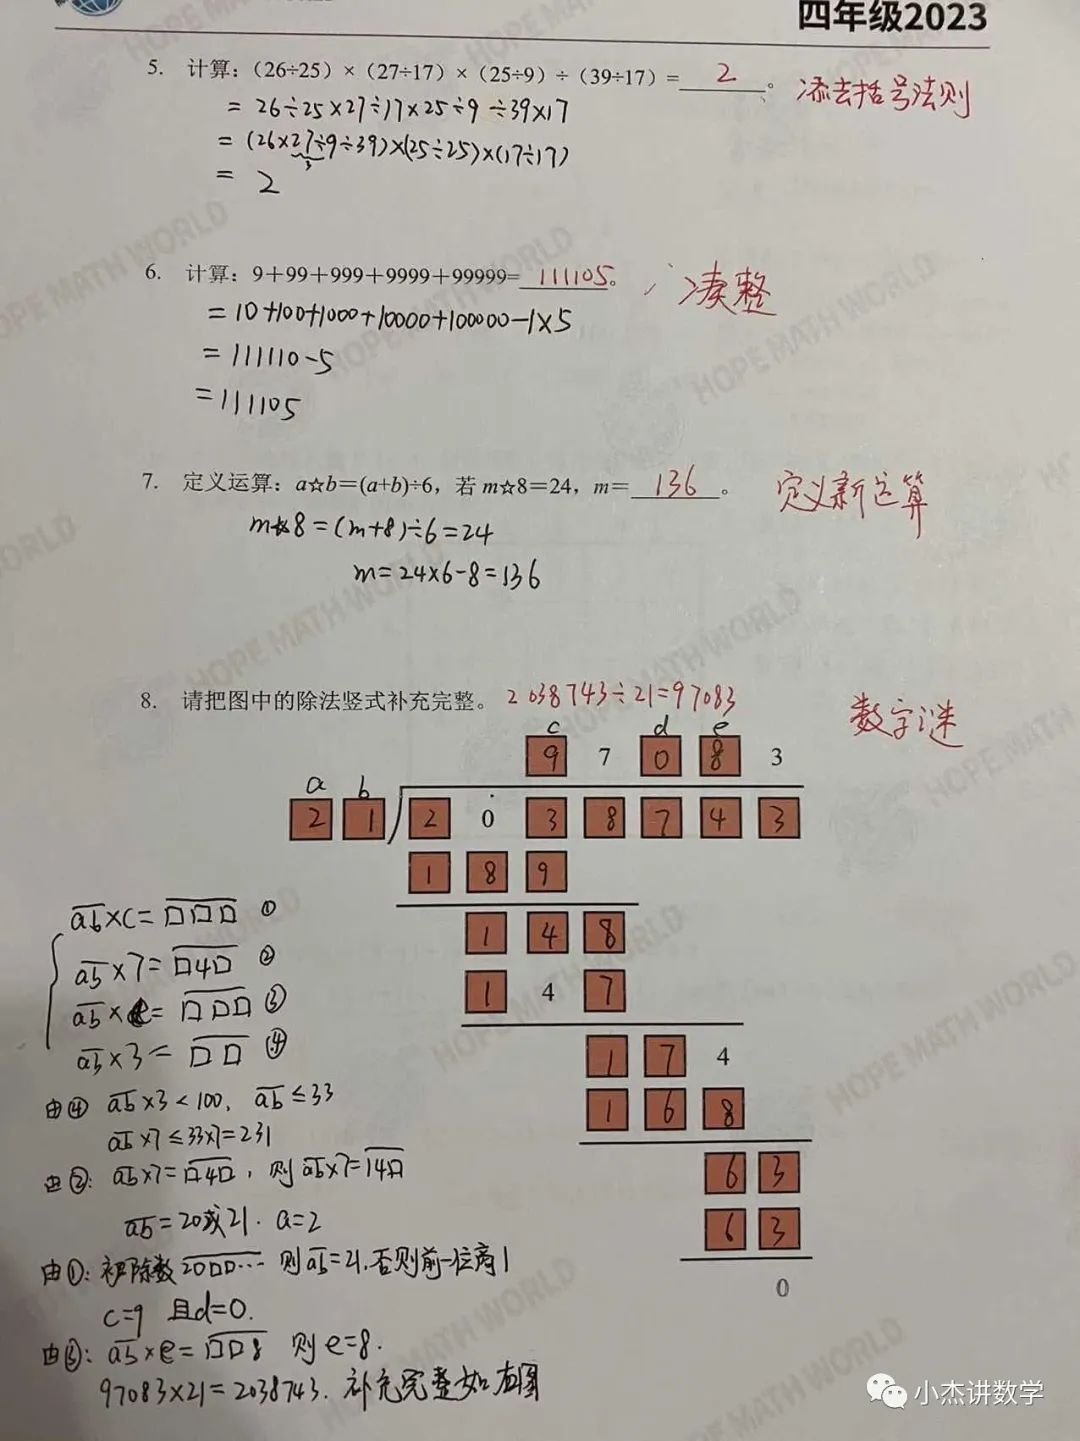 四年级2023
5. 计算：（26÷25）×（27÷17）×（25÷9）÷（39÷17）= 2 。 添去括号法则
= 26÷25×27÷17×25÷9÷39×17
= (26×27÷9÷39)×(25÷25)×(17÷17)
3
= 2
6. 计算：9＋99＋999＋9999＋99999= 111105 。 凑整
= 10+100+1000+10000+100000-1×5
= 111110-5
= 111105
7. 定义运算：a☆b＝(a+b)÷6，若 m☆8＝24，m＝ 136 。 定义新运算
m☆8=(m+8)÷6=24
m=24×6-8=136
8. 请把图中的除法竖式补充完整。 2038743÷21=97083 数字谜
c d e
9 7 0 8 3
a b
2 1 2 0 3 8 7 4 3
1 8 9
1 4 8
1 4 7
1 7 4
1 6 8
6 3
6 3
0
ab×c=□□□ ①
ab×7=□4□ ②
ab×e=□□□ ③
ab×3=□□ ④
由④ ab×3<100, ab≤33
ab×7≤33×7=231
由②: ab×7=□4□, 则ab×7=14□
ab=20或21. a=2
由①: 被除数20□□… 则ab=21,否则前一位商1
c=9 且d=0.
由③: ab×e=□□8 则e=8.
97083×21=2038743. 补充完整如右图
HOPE MATH WORLD
小杰讲数学